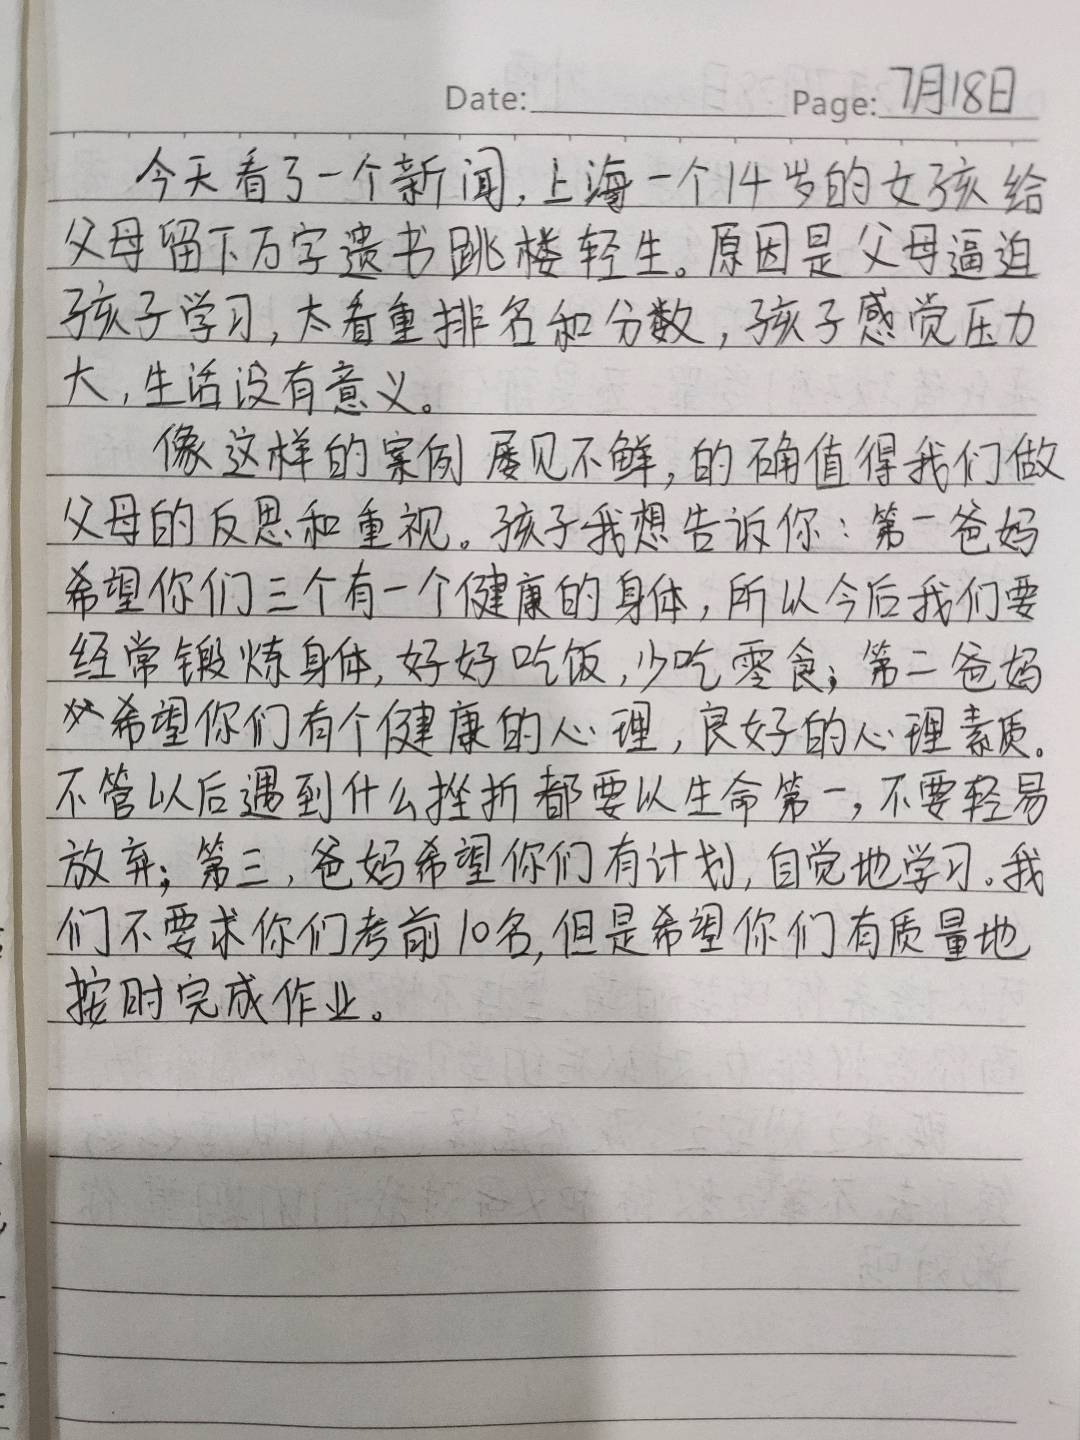 Date: Page: 7月18日
今天看了一个新闻,上海一个14岁的女孩给
父母留下万字遗书跳楼轻生。原因是父母逼迫
孩子学习,太看重排名和分数,孩子感觉压力
大,生活没有意义。
像这样的案例屡见不鲜,的确值得我们做
父母的反思和重视。孩子我想告诉你:第一爸妈
希望你们三个有一个健康的身体,所以今后我们要
经常锻炼身体,好好吃饭,少吃零食;第二爸妈
希望你们有个健康的心理,良好的心理素质。
不管以后遇到什么挫折都要以生命第一,不要轻易
放弃;第三,爸妈希望你们有计划,自觉地学习。我
们不要求你们考前10名,但是希望你们有质量地
按时完成作业。